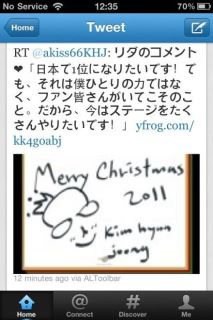 No Service 12:35
Home Tweet
RT @akiss66KHJ: リダのコメント
❤「日本で1位になりたいです！で
も、それは僕ひとりの力ではな
く、ファン皆さんがいてこそのこ
と。だから、今はステージをたく
さんやりたいです！」yfrog.com/
kk4goabj
Merry Christmas
2011
Kim hyun
joong
12 minutes ago via ALToolbar
Home @Connect #Discover Me